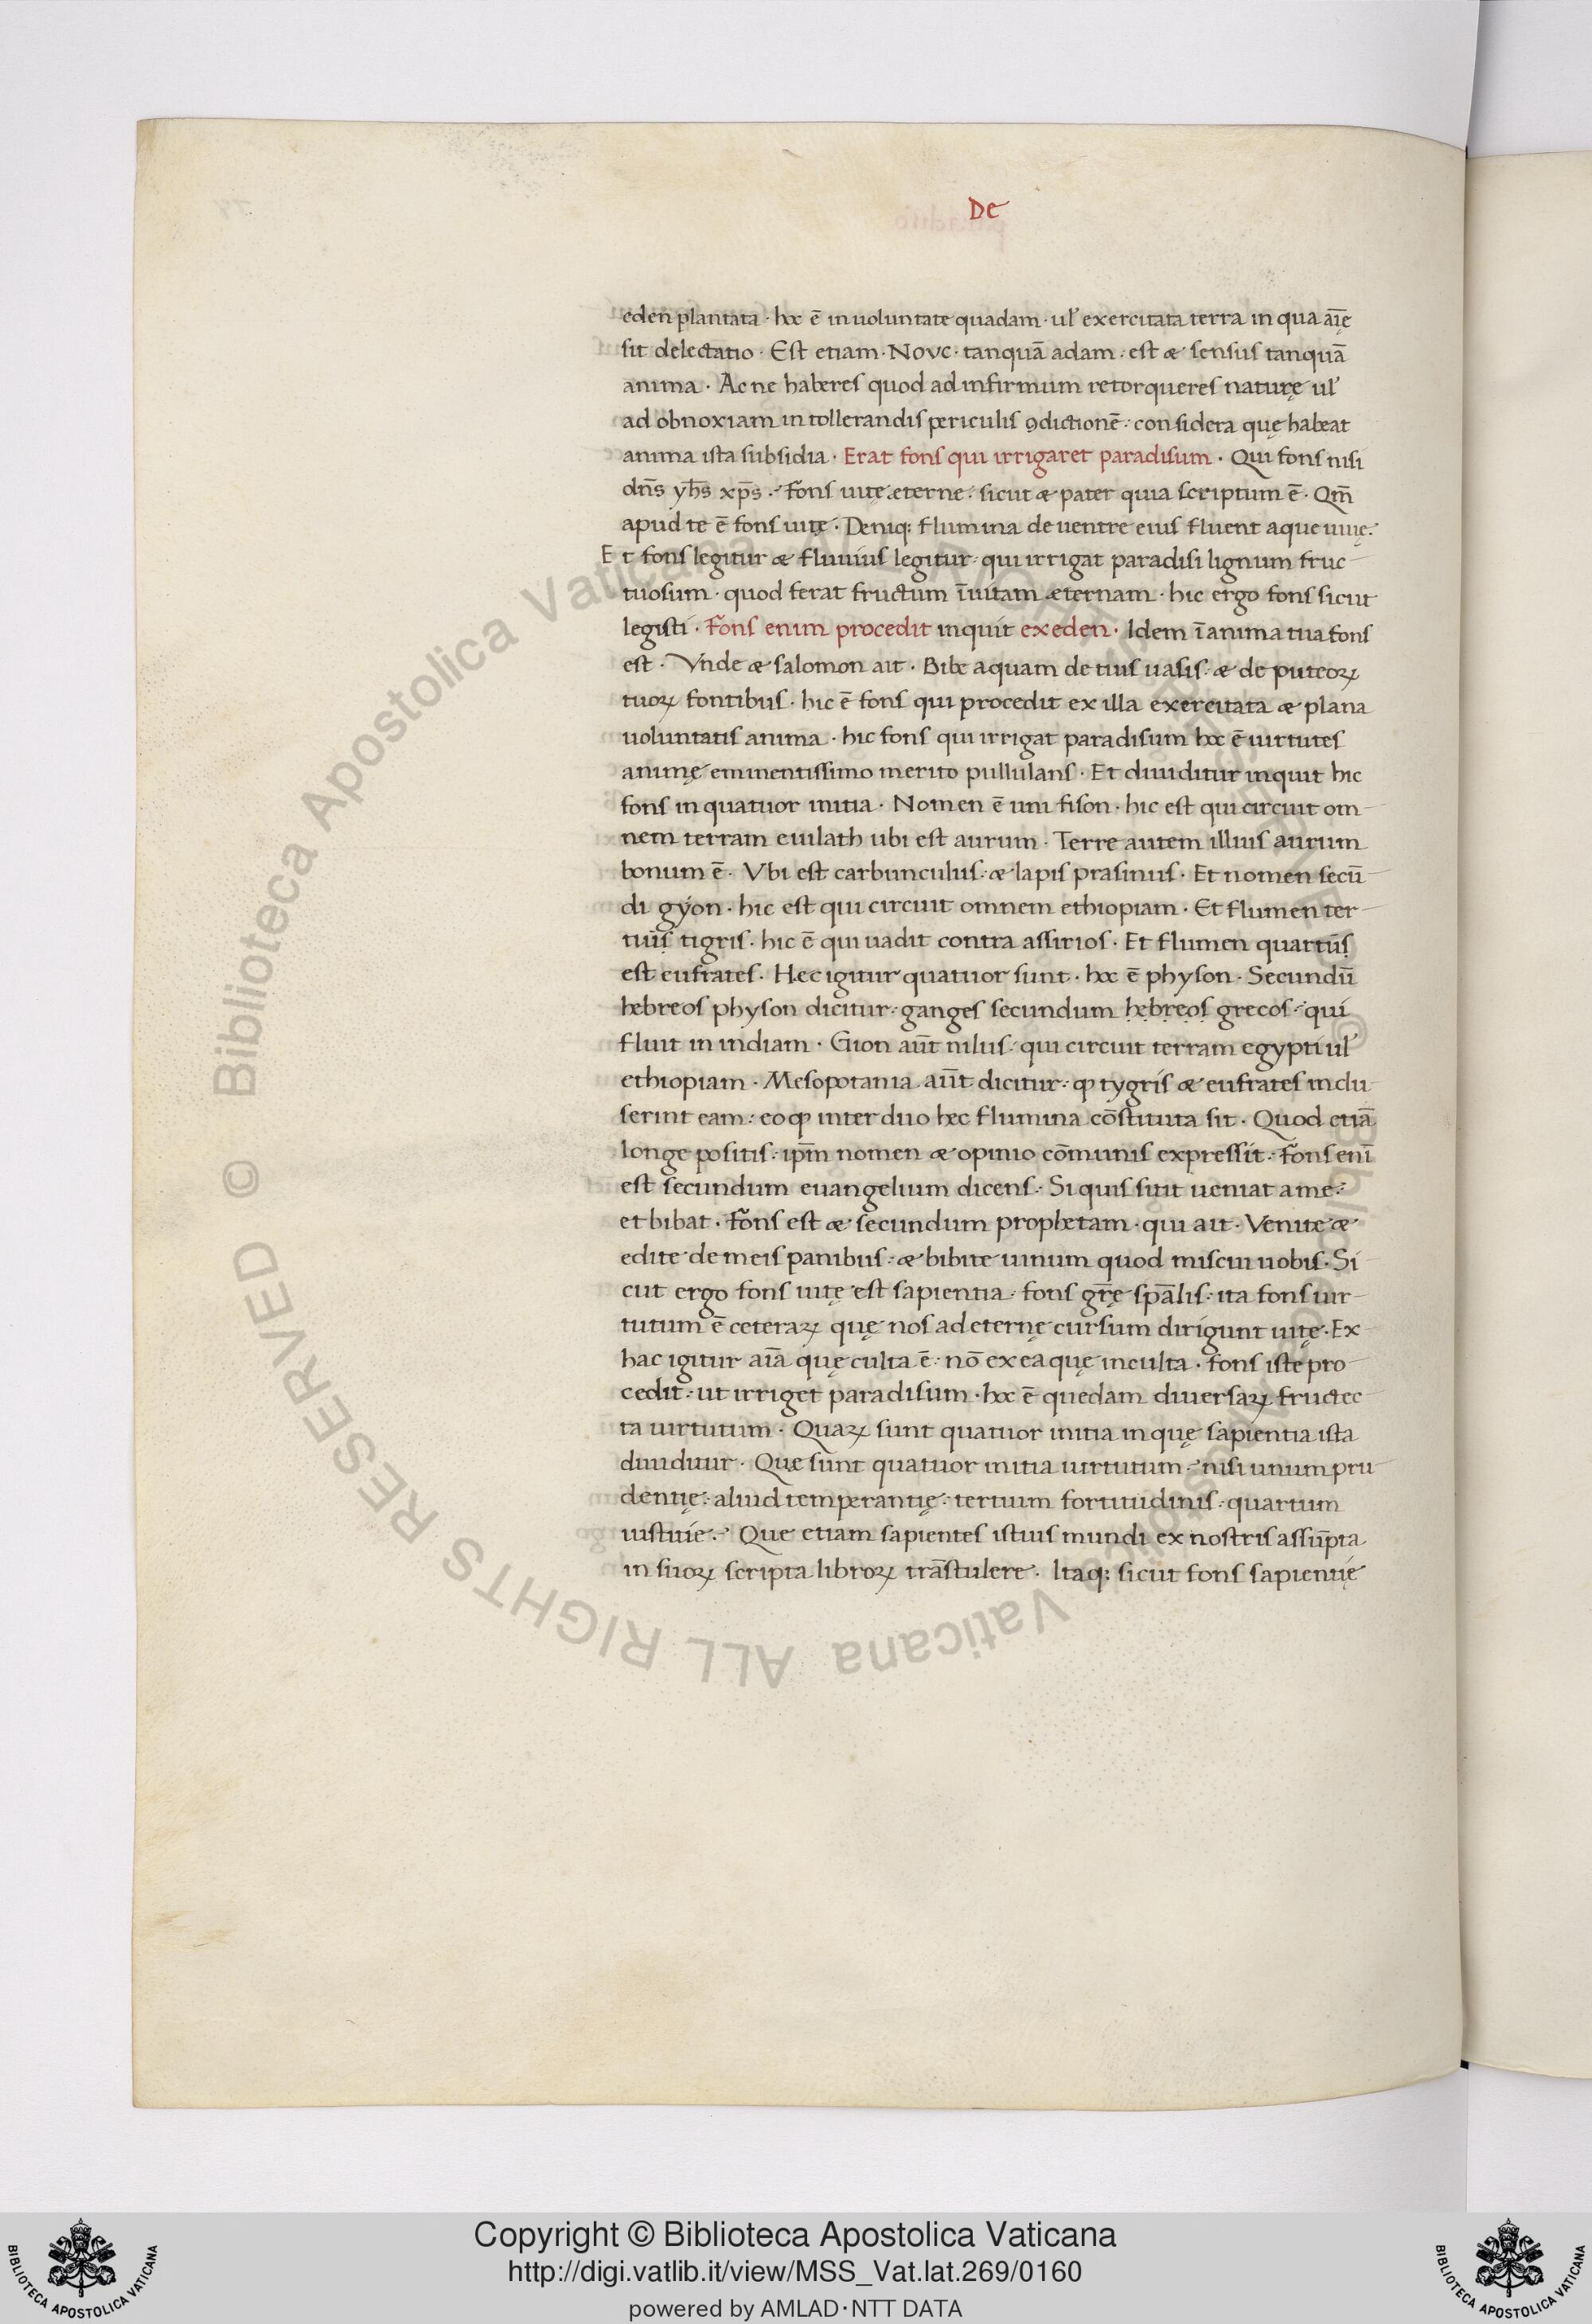 De
eden plantata · hoc ē in uoluntate quadam · ul̓ exercitata terra in qua aīę
sit delectatio · Est etiam · NOVC · tanquā adam · est & sensus tanquā
anima · Ac ne haberes quod ad infirmum retorqueres naturę ul̓
ad obnoxiam in tollerandis periculis ꝯdictionē : considera quę habeat
anima ista subsidia · Erat fons qui irrigaret paradisum · Qui fons nisi
dn̄s yh̄s xp̄s · Fons uitę æterne : sicut & pater quia scriptum ē · Qm̄
apud te ē fons uitę · Deniq; flumina de uentre eius fluent aque uiuę :
Et fons legitur & fluuius legitur · qui irrigat paradisi lignum fruc
tuosum · quod ferat fructum ī uitam æternam · hic ergo fons sicut
legisti · Fons enim procedit inquit ex eden · Idem ī anima tua fons
est · Vnde & salomon ait · Bibe aquam de tuis uasis : & de puteoꝝ
tuoꝝ fontibus · hic ē fons qui procedit ex illa exercitata & plana
uoluntatis anima · hic fons qui irrigat paradisum hoc ē uirtutes
animę eminentissimo merito pullulans · Et diuiditur inquit hic
fons in quatuor initia · Nomen ē uni fison · hic est qui circuit om
nem terram euilath ubi est aurum · Terre autem illius aurum
bonum ē · Vbi est carbunculus : & lapis prasinus · Et nomen secū
di gyon · hic est qui circuit omnem ethiopiam · Et flumen ter
tiūs tigris · hic ē qui uadit contra assirios · Et flumen quartūs
est eufrates · Hæc igitur quatuor sunt · hoc ē physon · Secundū
hebreos physon dicitur : ganges secundum hebreos grecos : qui
fluit in indiam · Gion aūt nilus : qui circuit terram egypti ul̓
ethiopiam · Mesopotania aūt dicitur : ꝙ tygris & eufrates inclu
serint eam : eoꝙ inter duo hec flumina cōstituta sit · Quod etiā
longe positis : ip̄m nomen & opinio cōmunis expressit : Fons enī
est secundum euangelium dicens : Si quis sitit ueniat a me :
et bibat · Fons est & secundum prophetam · qui ait · Venite &
edite de meis panibus : & bibite uinum quod miscui uobis · Si
cut ergo fons uitę est sapientia : fons gr̄ę spālis : ita fons uir
tutum ē ceteraꝝ quę nos ad eternę cursum dirigunt uitę · Ex
hac igitur aīa quę culta ē : nō ex ea quę inculta · fons iste pro
cedit : ut irriget paradisum · hoc ē quedam diuersaꝝ fructec
ta uirtutum · Quaꝝ sunt quatuor initia in quę sapientia ista
diuiditur · Quæ sunt quatuor initia uirtutum : nisi unum pru
dentię : aliud temperantię : tertium fortitudinis : quartum
iustitie : Que etiam sapientes istius mundi ex nostris assūpta
in suoꝝ scripta libroꝝ trāstulere · Itaq; sicut fons sapientię
Copyright © Biblioteca Apostolica Vaticana
http://digi.vatlib.it/view/MSS_Vat.lat.269/0160
powered by AMLAD·NTT DATA
BIBLIOTECA APOSTOLICA VATICANA
BIBLIOTECA APOSTOLICA VATICANA
© Biblioteca Apostolica Vaticana ALL RIGHTS RESERVED © Biblioteca Apostolica Vaticana ALL RIGHTS RESERVED